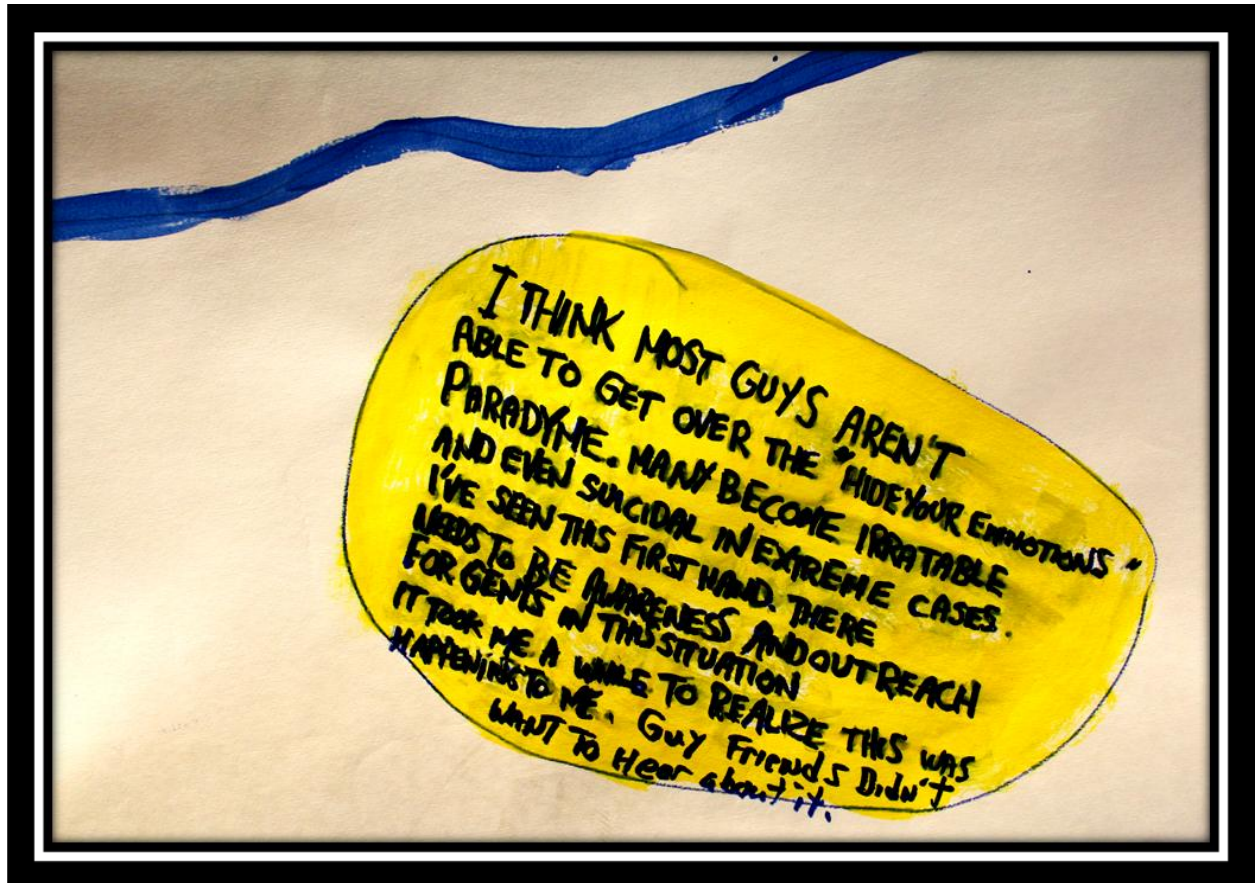 I THINK MOST GUYS AREN'T
ABLE TO GET OVER THE "HIDE YOUR EMMOTIONS"
PARADYME. MANY BECOME IRRATABLE
AND EVEN SUICIDAL IN EXTREME CASES.
I'VE SEEN THIS FIRST HAND. THERE
NEEDS TO BE AWARENESS AND OUTREACH
FOR GENTS IN THIS SITUATION
IT TOOK ME A WHILE TO REALIZE THIS WAS
HAPPENING TO ME. Guy Friends Didn't
WANT To Hear about it.